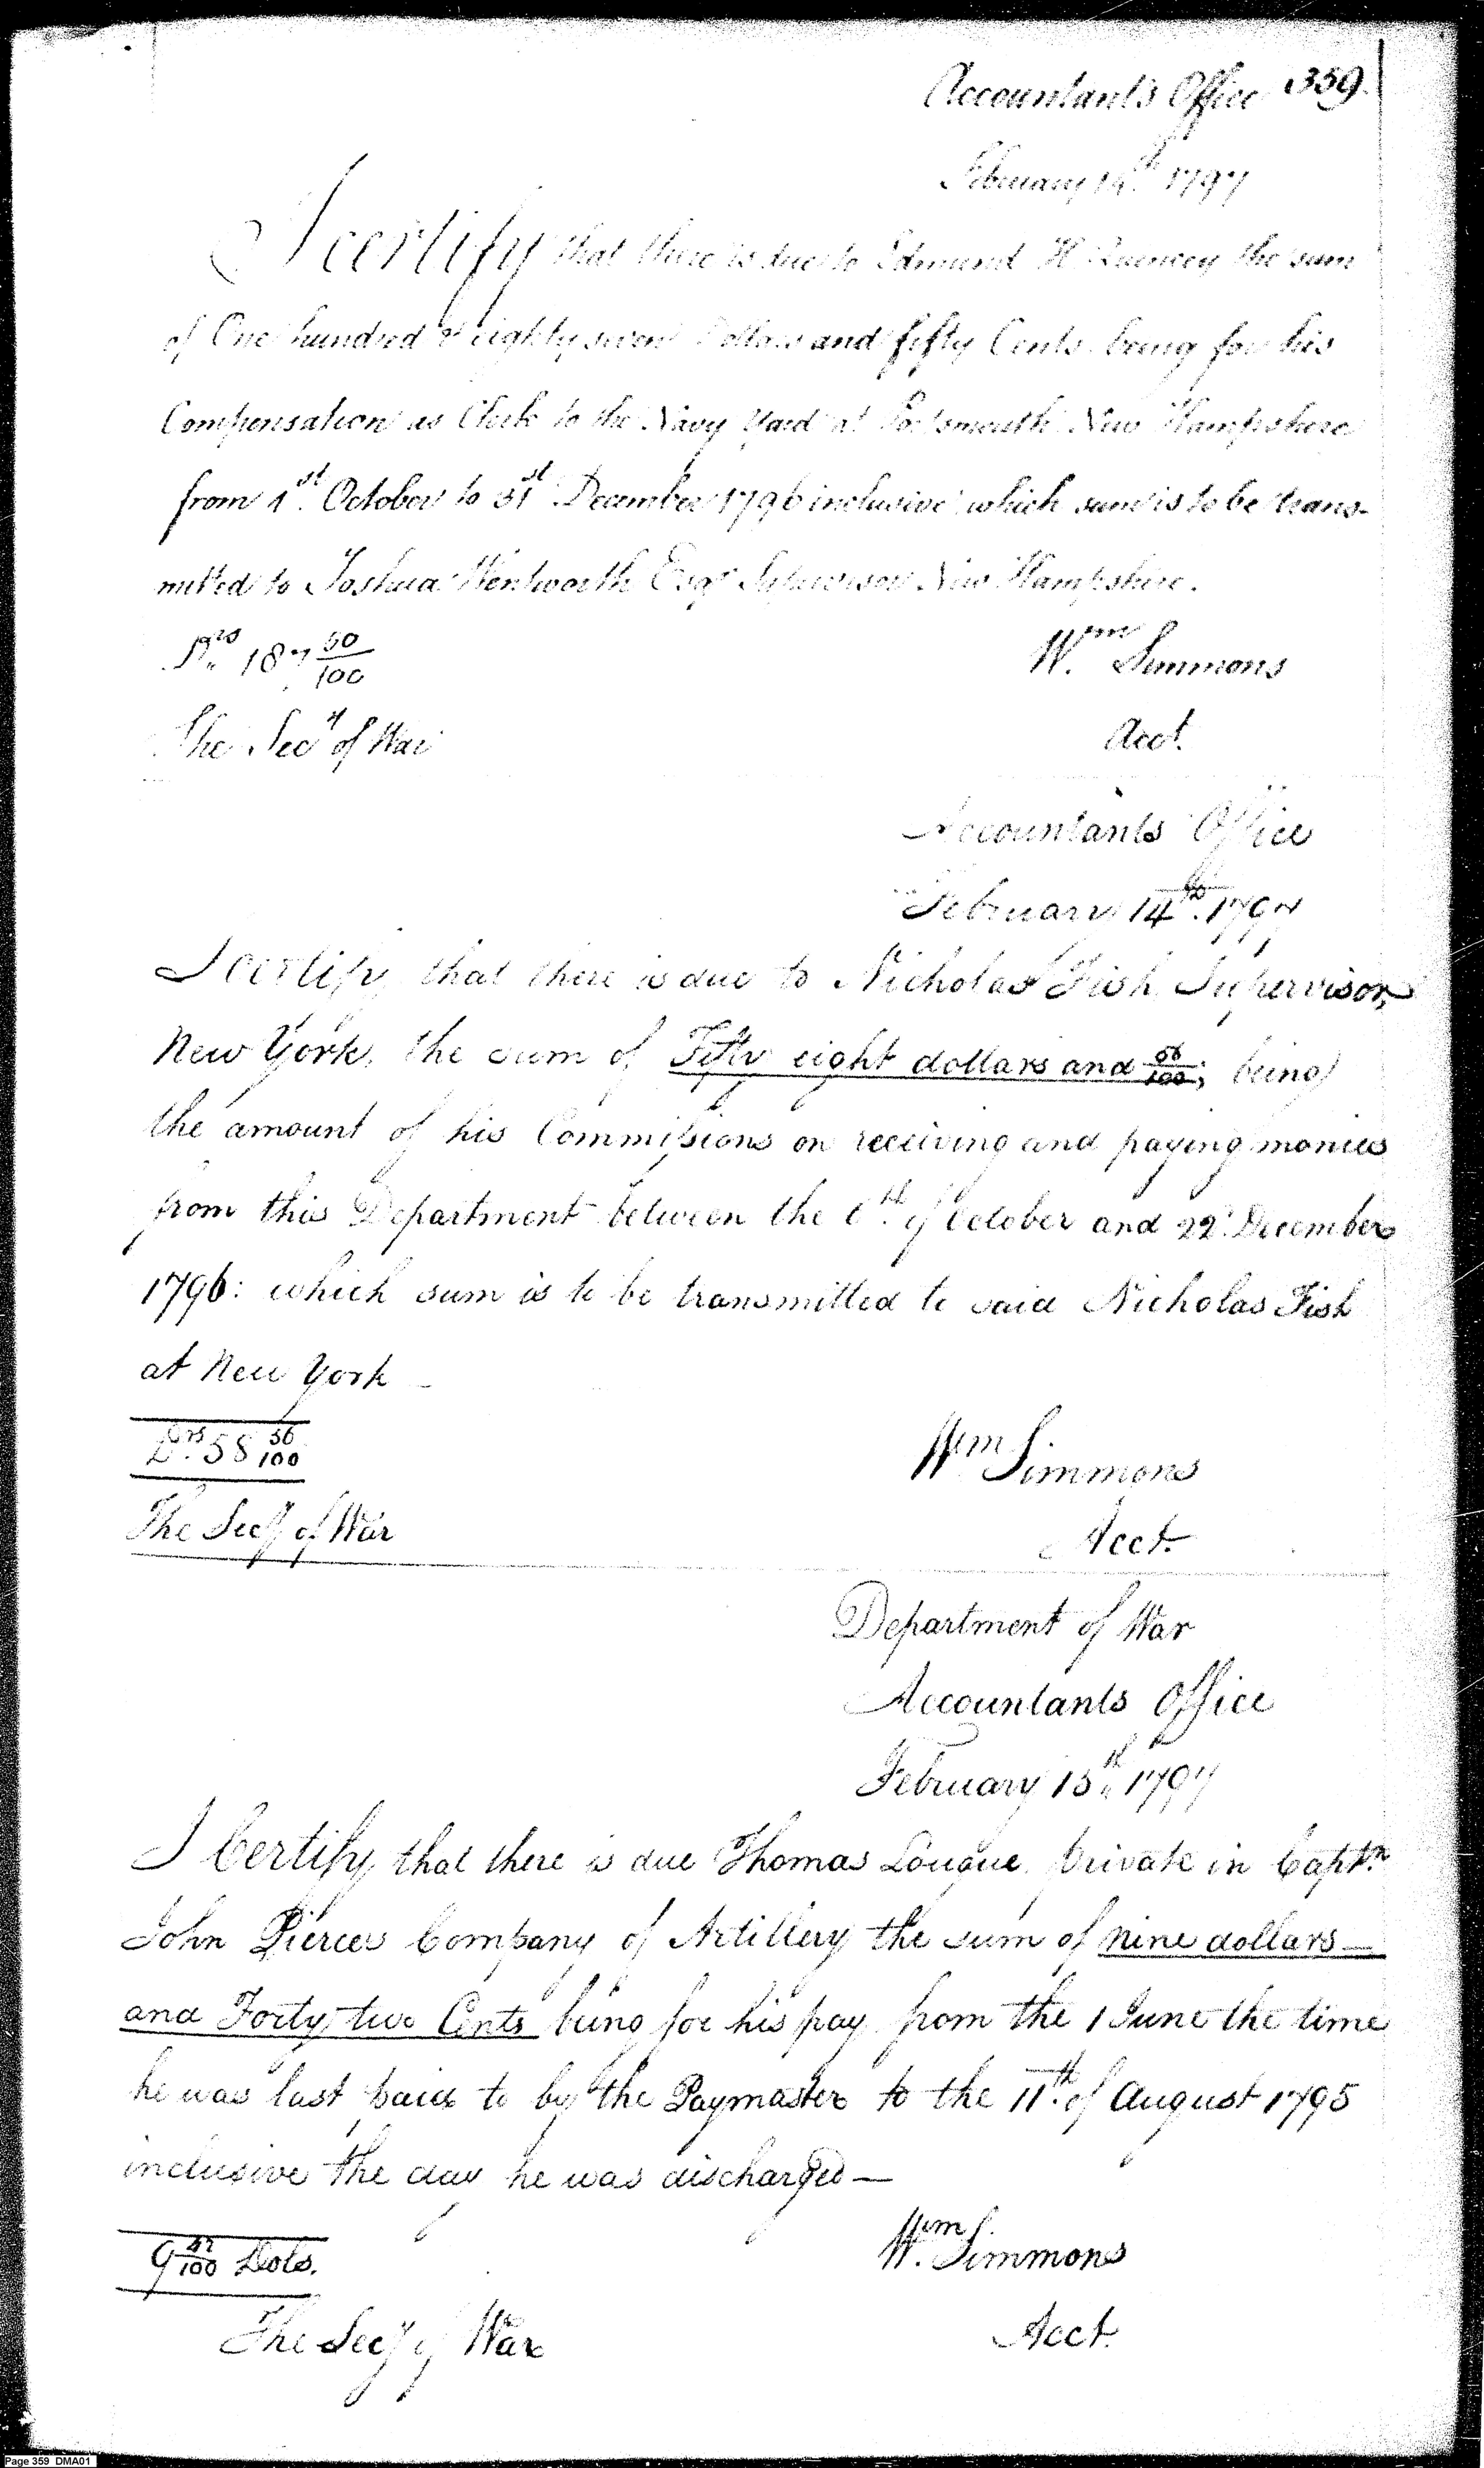 Accountants Office 359.
February 14th 1797
I certify that there is due to Edmund H Quencey the sum
of One hundred & eighty seven Dollars and fifty Cents being for his
Compensation as Clerk to the Navy Yard at Portsmouth New Hampshire
from 1st October to 31st December 1796 inclusive which sum is to be trans-
mitted to Joshua Wentworth Esqr Supervisor New Hampshire.
Drs 187 50/100
Wm Simmons
The Secy of War
Acct.
Accountants Office
February 14th. 1797
I certify that there is due to Nicholas Fish Supervisor,
New York, the sum of Fifty eight dollars and 56/100; being
the amount of his Commissions on receiving and paying monies
from this Department between the of October and 22d December
1796: which sum is to be transmitted to said Nicholas Fish
at New York
Drs 58 56/100
Wm Simmons
The Secy of War
Acct.
Department of War
Accountants Office
February 15th 1797
I Certify that there is due Thomas Louque Private in Captn
John Pierces Company of Artillery the sum of nine dollars
and Forty two Cents being for his pay from the 1 June the time
he was last paid to by the Paymaster to the 11th of August 1795
inclusive the day he was discharged —
9 42/100 Dols.
Wm Simmons
The Secy of War
Acct.
Page 359 DMA01